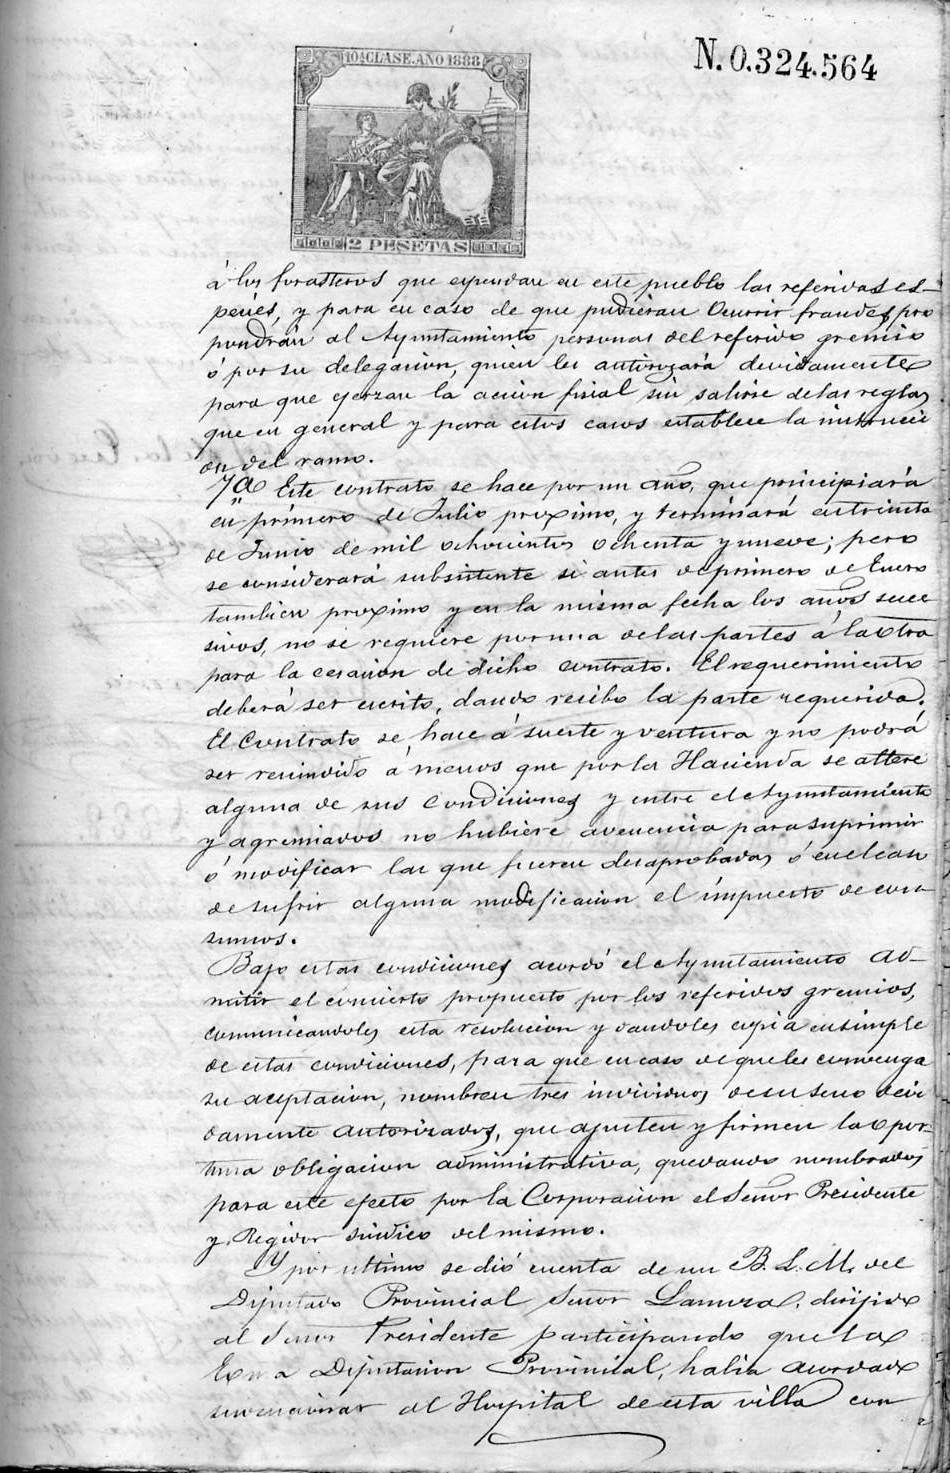 N. 0.324.564
10ª CLASE. AÑO 1888
2 PESETAS
á los forasteros que espendan en este pueblo las referidas es-
pecies, y para en caso de que pudieran ocurrir fraudes pro
pondrán al Ayuntamiento personas del referido gremio
ó por su delegacion, quien les autorizará devidamente
para que ejerzan la acción fiscal sin salirse de las reglas
que en general y para estos casos establece la instrucci
on del ramo.
7ª Este contrato se hace por un año, que principiará
en primero de Julio proximo, y terminará en treinta
de Junio de mil ochocientos ochenta y nueve; pero
se considerará subsistente si antes de primero de Enero
tambien proximo y en la misma fecha los años suce
sivos, no se requiere por una de las partes á la otra
para la cesación de dicho contrato. El requerimiento
deberá ser escrito, dando recibo la parte requerida.
El Contrato se hace á suerte y ventura y no podrá
ser rescindido á menos que por la Hacienda se altere
alguna de sus condiciones y entre el Ayuntamiento
y agremiados no hubiere avenencia para suprimir
ó modificar las que fueren desaprobadas ó en el caso
de sufrir alguna modificacion el impuesto de con-
sumos.
Bajo estas condiciones acordó el Ayuntamiento ad-
mitir el concierto propuesto por los referidos gremios,
comunicandoles esta resolucion y dandoles copia en simple
de estas condiciones, para que en caso de que les convenga
su aceptacion, nombren tres individuos de su seno devi
damente autorizados, que ajusten y firmen la opor-
tuna obligacion administrativa, quedando nombrados
para este efecto por la Corporacion el Señor Presidente
y Regidor Sindico del mismo.
Y por ultimo se dió cuenta de un B. L. M. del
Diputado Provincial Señor dirijido
al Señor Presidente participando que la
Exma Diputacion Provincial, habia acordado
al Hospital de esta villa con